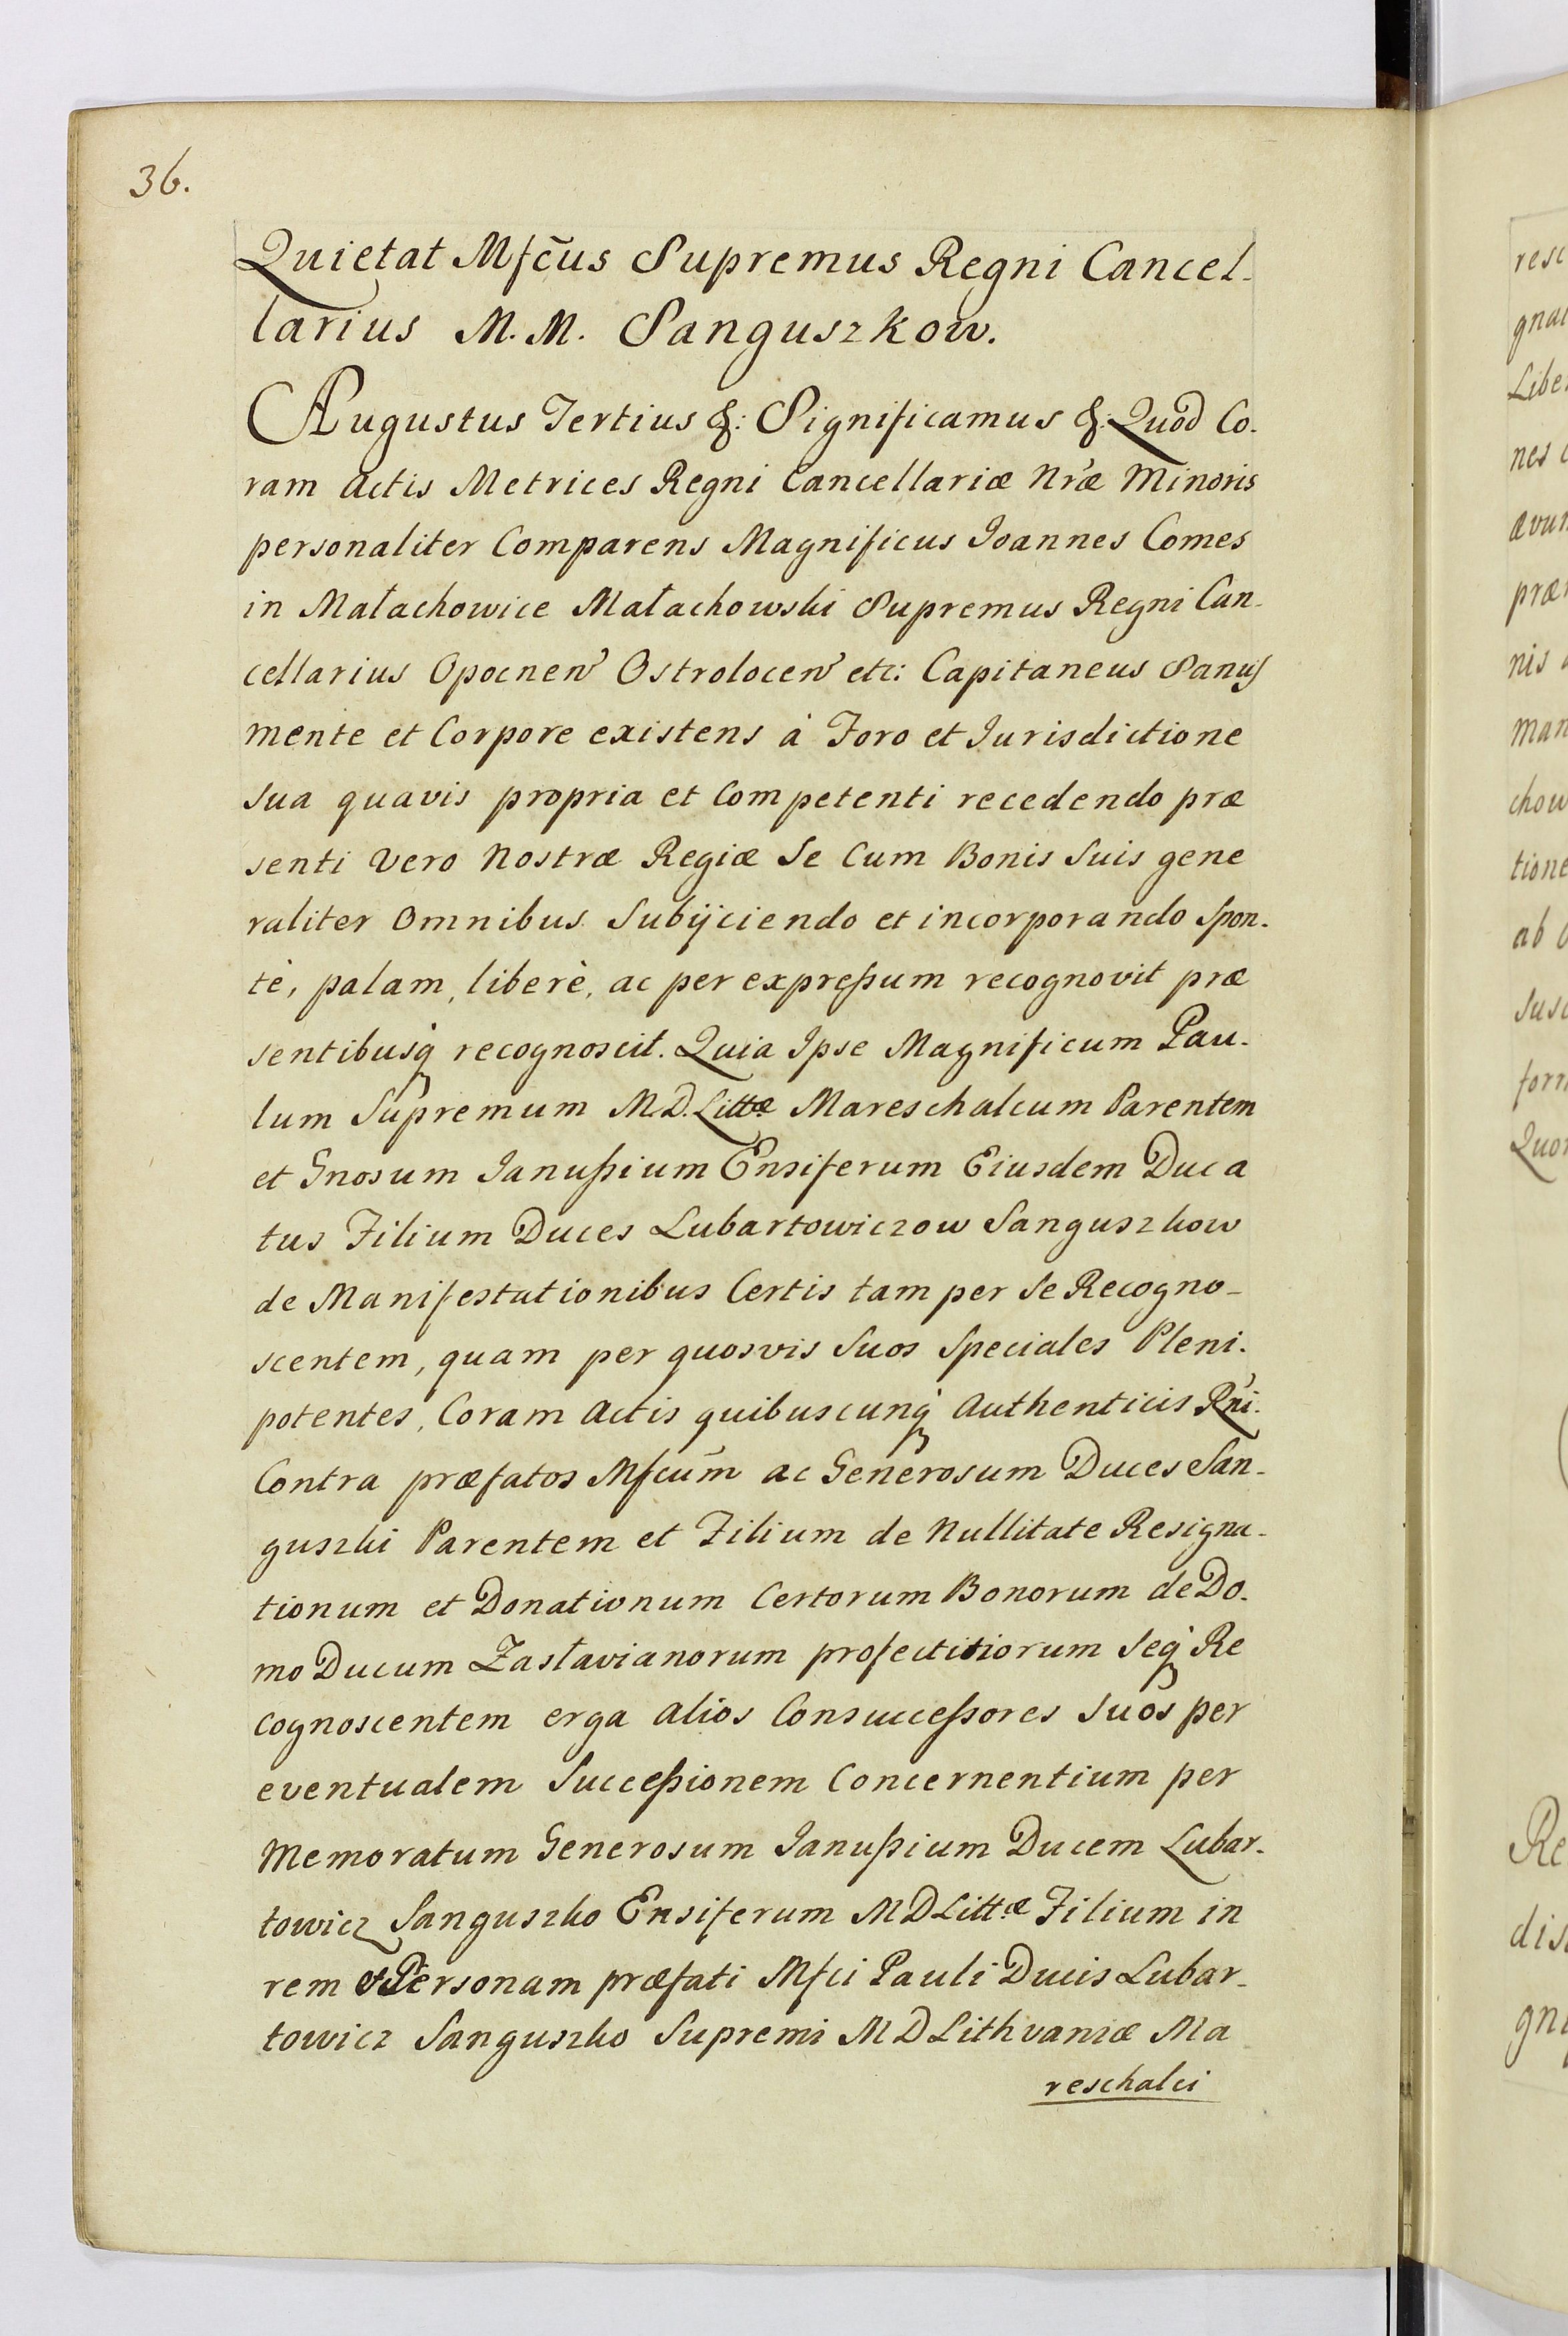 36.
Quietat Mfcūs Supremus Regni Cancel-
larius M. M. Sanguszkow.
Augustus Tertius &: Significamus &: Quod Co-
ram Actis Metrices Regni Cancellariæ Nræ Minoris
personaliter Comparens Magnificus Joannes Comes
in Małachowice Małachowski Supremus Regni Can-
cellarius Opocnen Ostrolocen etc: Capitaneus Sanus
mente et Corpore existens à Foro et Jurisdictione
sua quavis propria et Competenti recedendo præ
senti vero Nostræ Regiæ Se Cum Bonis Suis gene
raliter Omnibus Subijciendo et incorporando Spon-
tè, palam, liberè, ac per expreßum recognovit præ
sentibusq recognoscit. Quia Ipse Magnificum Pau-
lum Supremum M.D. Littæ Mareschalcum Parentem
et Gnosum Janußium Ensiferum Eiusdem Duca
tus Filium Duces Lubartowiczow Sanguszkow
de Manifestationibus Certis tam per Se Recogno-
scentem, quam per quosvis Suos Speciales Pleni-
potentes, Coram Actis quibuscunq Authenticis Rni.
Contra præfatos Mfcum ac Generosum Duces San-
guszki Parentem et Filium de Nullitate Resigna-
tionum et Donationum Certorum Bonorum de Do-
mo Ducum Zasłavianorum profectitiorum Seq Re
cognoscentem erga alios Consucceßores Suos per
eventualem Succeßionem Concernentium per
Memoratum Generosum Janußium Ducem Lubar-
towicz Sanguszko Ensiferum M D Littæ Filium in
rem et Personam præfati Mfci Pauli Ducis Lubar-
towicz Sanguszko Supremi M D Lithvaniæ Ma
reschalci
resc
gnat
Libe
nes
avun
præ
nis
man
chow
tione
ab
susc
form
Quor
Re
dis
gni